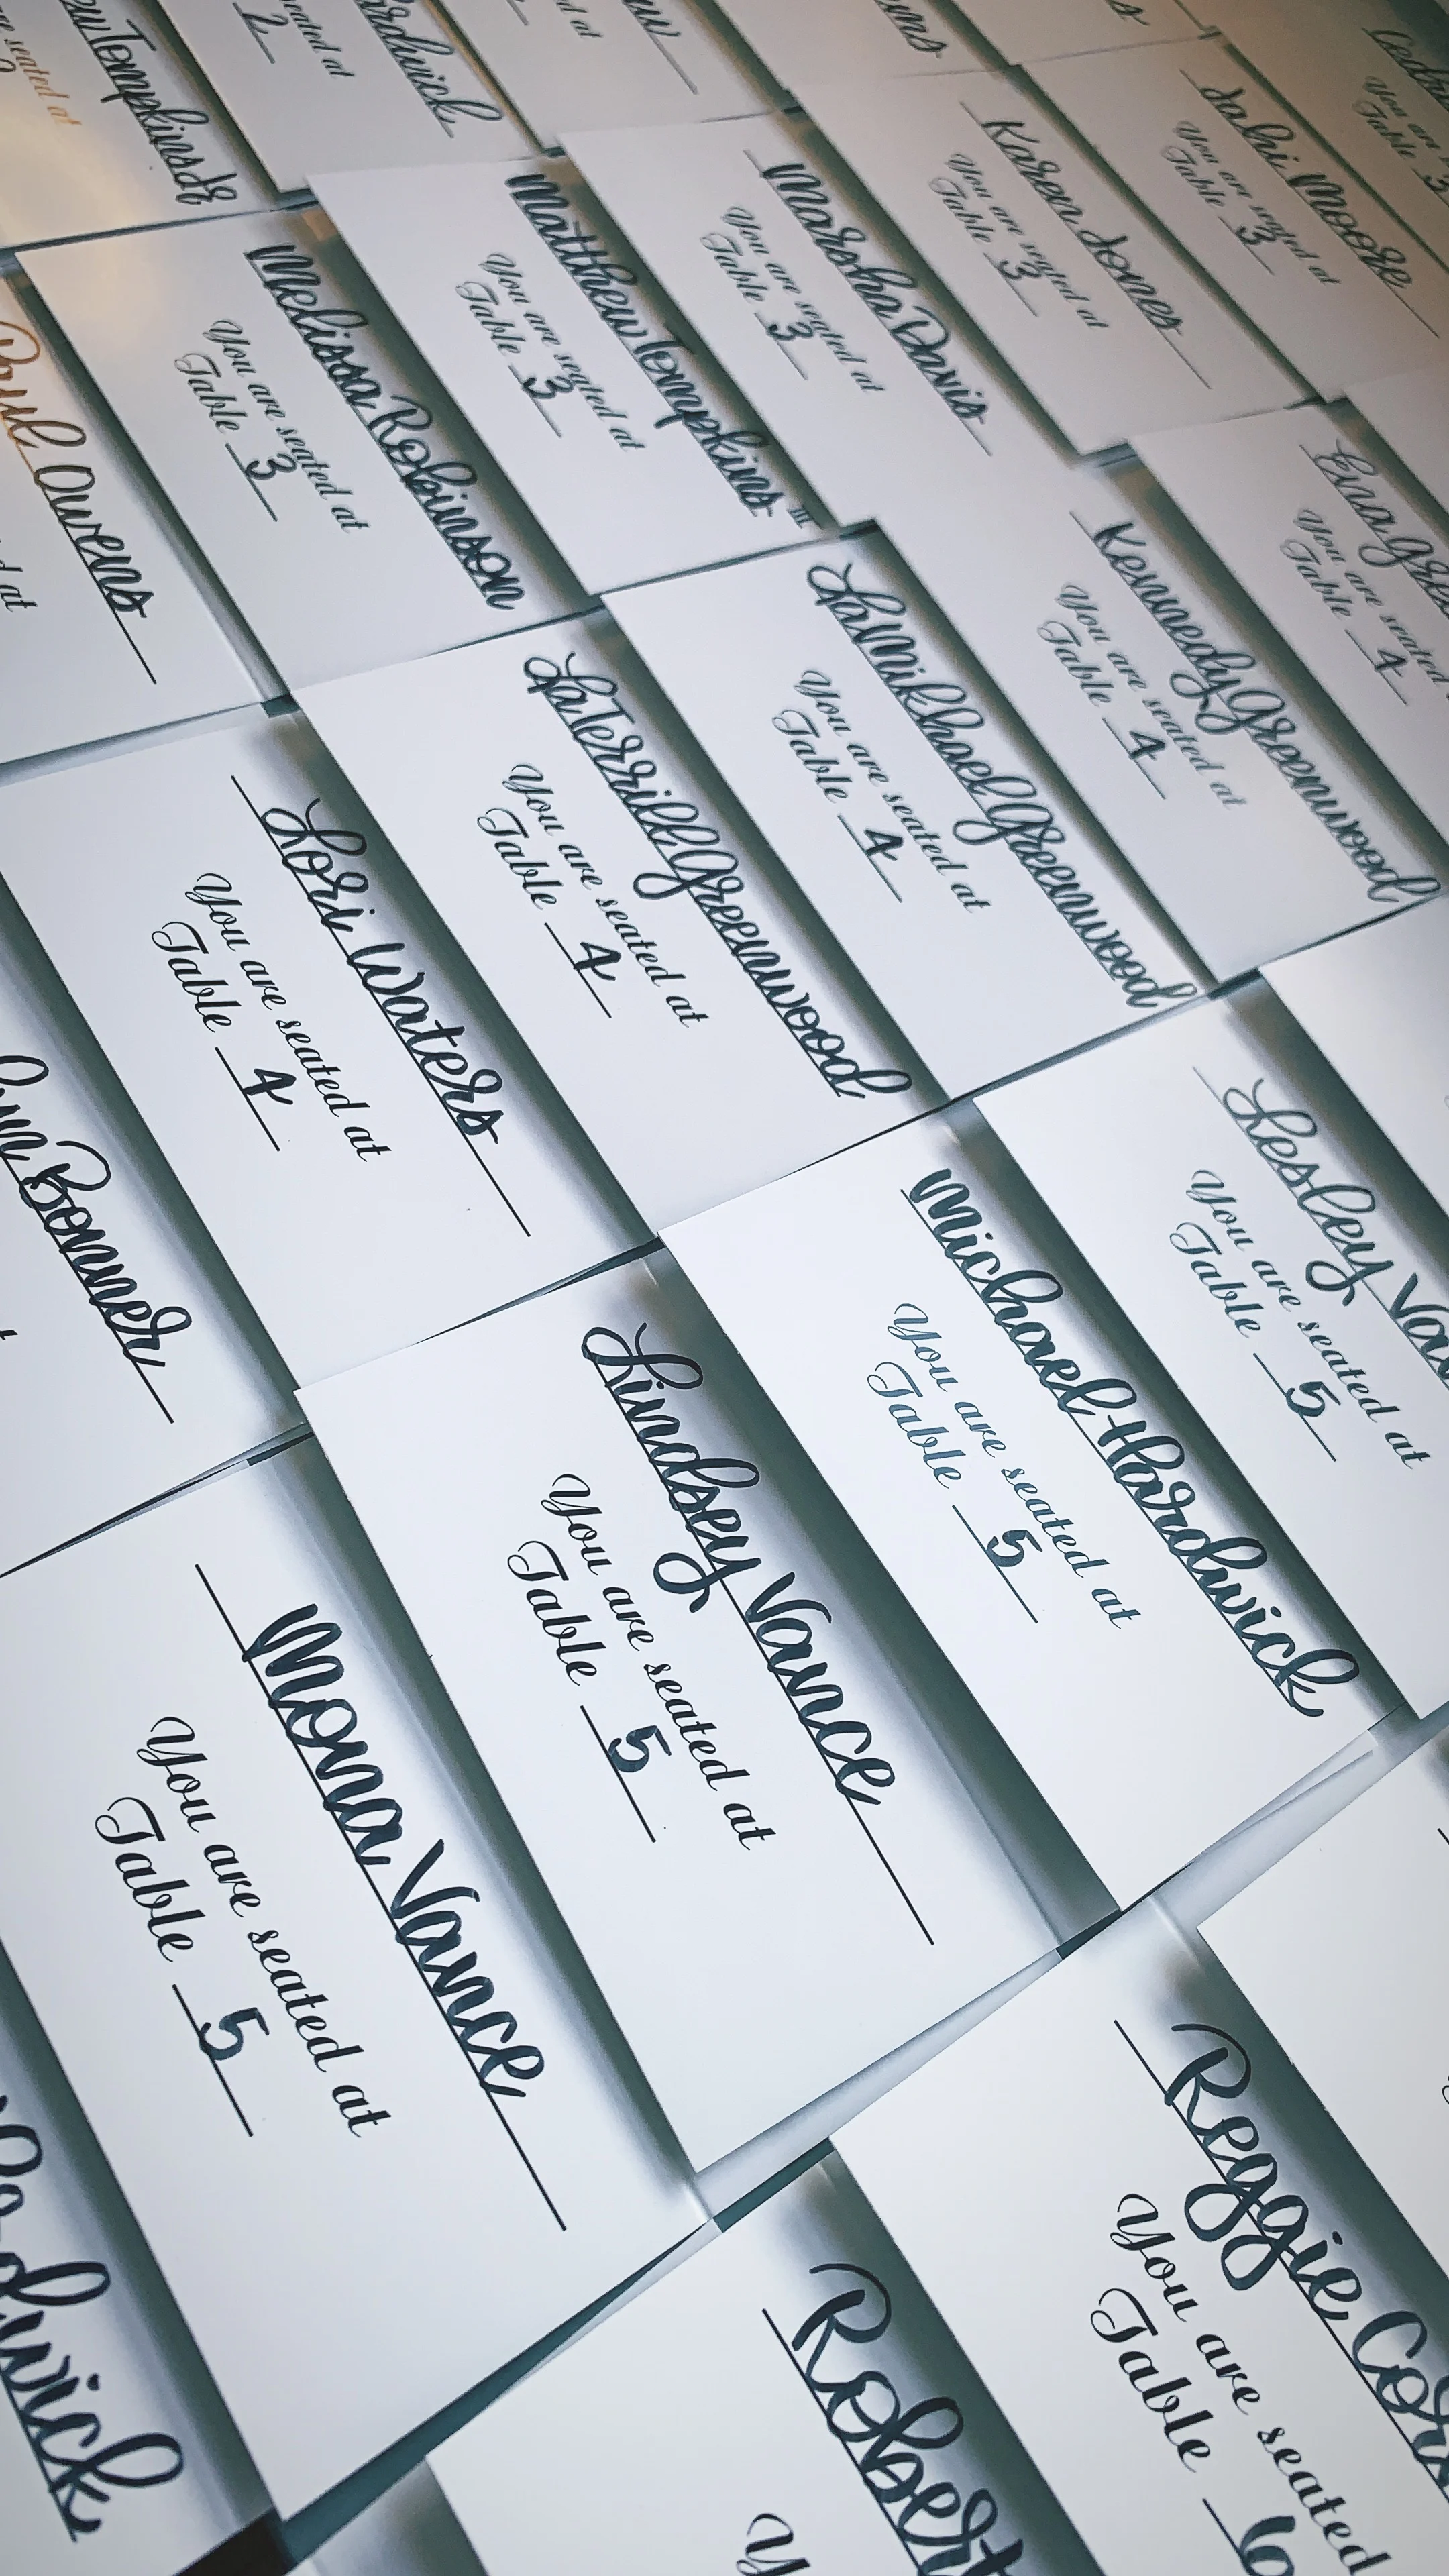 Tompkins Jr
seated at
seated at
2
at
Melissa Robinson
You are seated at
Table 3
Matthew Tompkins III
You are seated at
Table 3
Marsha Davis
You are seated at
Table 3
Karen Jones
You are seated at
Table 3
Jahi Moore
You are seated at
Table 3
You are
Table 3
Paul Owens
at
Lori Waters
You are seated at
Table 4
LaTerrill Greenwood
You are seated at
Table 4
LaMikhael Greenwood
You are seated at
Table 4
Kennedy Greenwood
You are seated at
Table 4
You are seated
Table 4
Bonner
Mona Vance
You are seated at
Table 5
Lindsey Vance
You are seated at
Table 5
Michael Hardwick
You are seated at
Table 5
Lesley
You are seated at
Table 5
Robert
Reggie
You are seated
Table